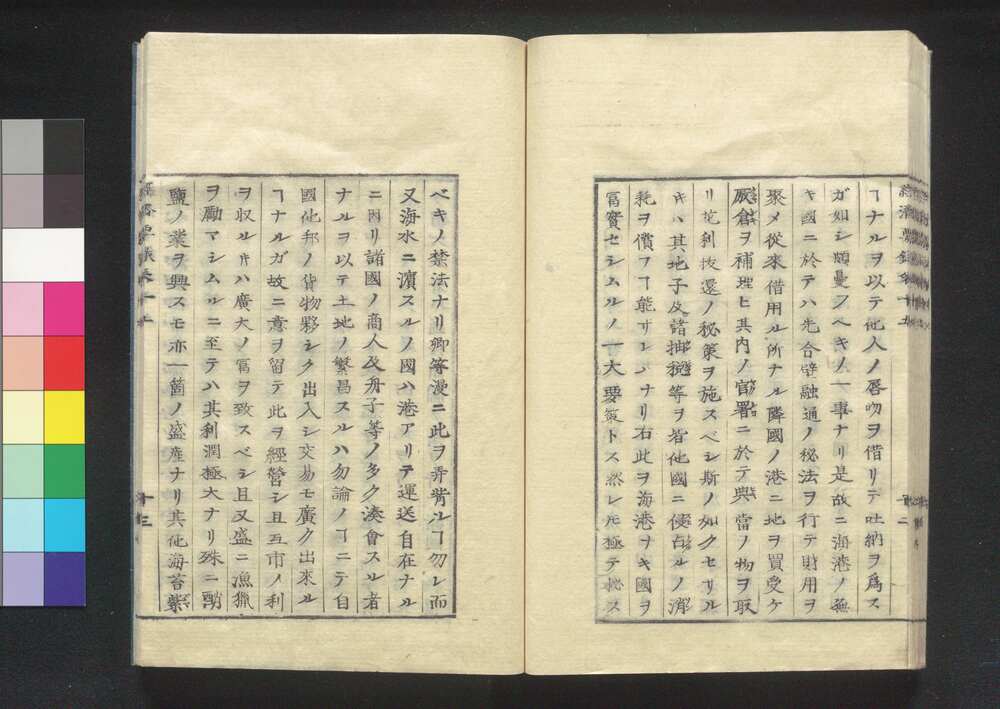 ヿナルヲ以テ他人ノ唇吻ヲ借リテ吐納ヲ爲ス
ガ如シ頗憂フベキノ一事ナリ是故ニ海港ノ無
キ國ニ於テハ先合壁融通ノ秘法ヲ行テ財用ヲ
聚メ從來借用ル所ナル隣國ノ港ニ地ヲ買受ケ
厫倉ヲ補理ヒ其内ノ官署ニ於テ典當ノ物ヲ取
リ抗利抜還ノ秘策ヲ施スベシ斯ノ如クセザル
キハ其地子及諸抽税等ヲ皆他國ニ使占ルノ
耗ヲ償フヿ能ザレバナリ右此ヲ海港ヲキ國ヲ
冨實セシムルノ一大要策トス然レ𪜈極テ秘ス
十二
ベキノ禁法ナリ卿等漫ニ此ヲ弄貲ルヿ勿レ而
又海水ニ濵スルノ國ハ港アリテ運送自在ナル
ニ因リ諸國ノ商人及舟子等ノ多ク湊會スル者
ナルヲ以テ土地ノ繁昌スルハ勿論ノヿニテ自
國他邦ノ貨物夥シク出入シ交易モ廣ク出來ル
ヿナルガ故ニ意ヲ留テ此ヲ經營シ且互市ノ利
ヲ収ルキハ廣大ノ冨ヲ致スベシ且又盛ニ漁獵
ヲ勵マシムルニ至テハ其利潤極大ナリ殊ニ
鹽ノ業ヲ興スモ亦一箇ノ盛産ナリ其他海苔紫
十三